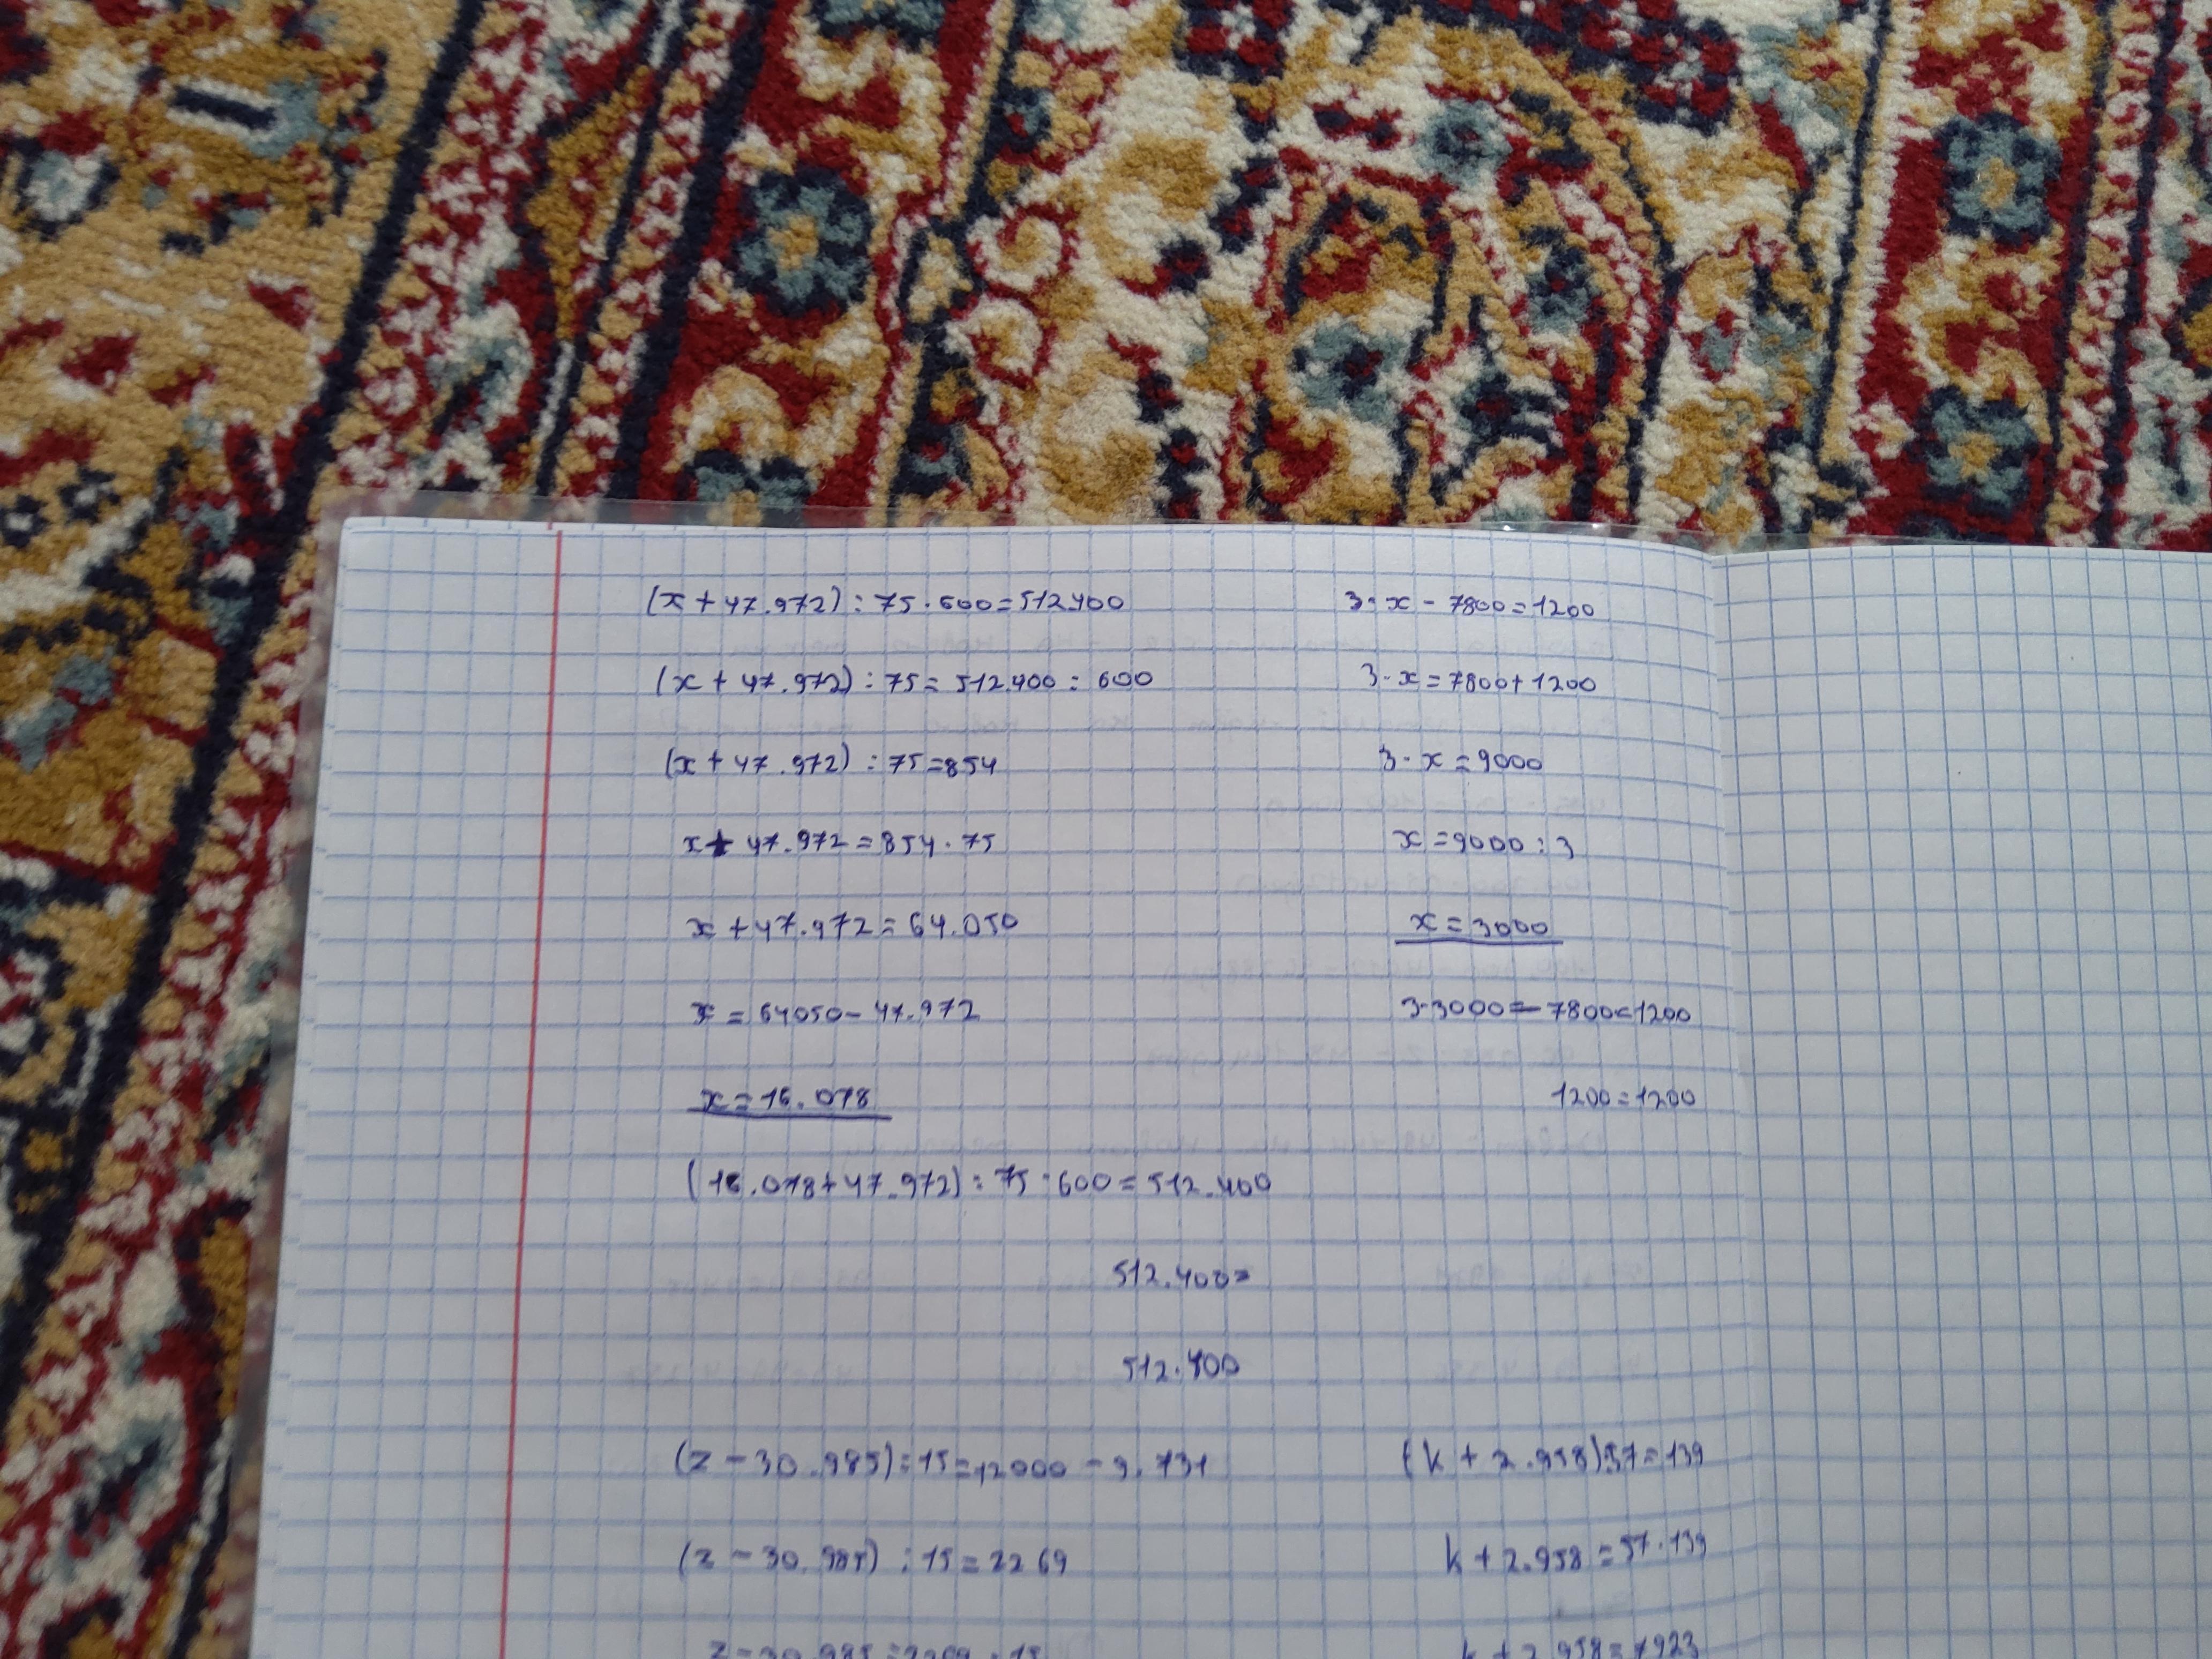 (x + 47.972) : 75 · 600 = 512400
(x + 47.972) : 75 = 512.400 : 600
(x + 47.972) : 75 = 854
x + 47.972 = 854 · 75
x + 47.972 = 64.050
x = 64050 - 47.972
x = 16.078
(16.078 + 47.972) : 75 · 600 = 512.400
512.400 =
512.400
3 · x - 7800 = 1200
3 · x = 7800 + 1200
3 · x = 9000
x = 9000 : 3
x = 3000
3 · 3000 - 7800 = 1200
1200 = 1200
(z - 30.985) : 15 = 12000 - 9.731
(z - 30.985) : 15 = 2269
z - 30.985 = 2269 · 15
(k + 2.958) : 57 = 139
k + 2.958 = 57 · 139
k + 2.958 = 7923